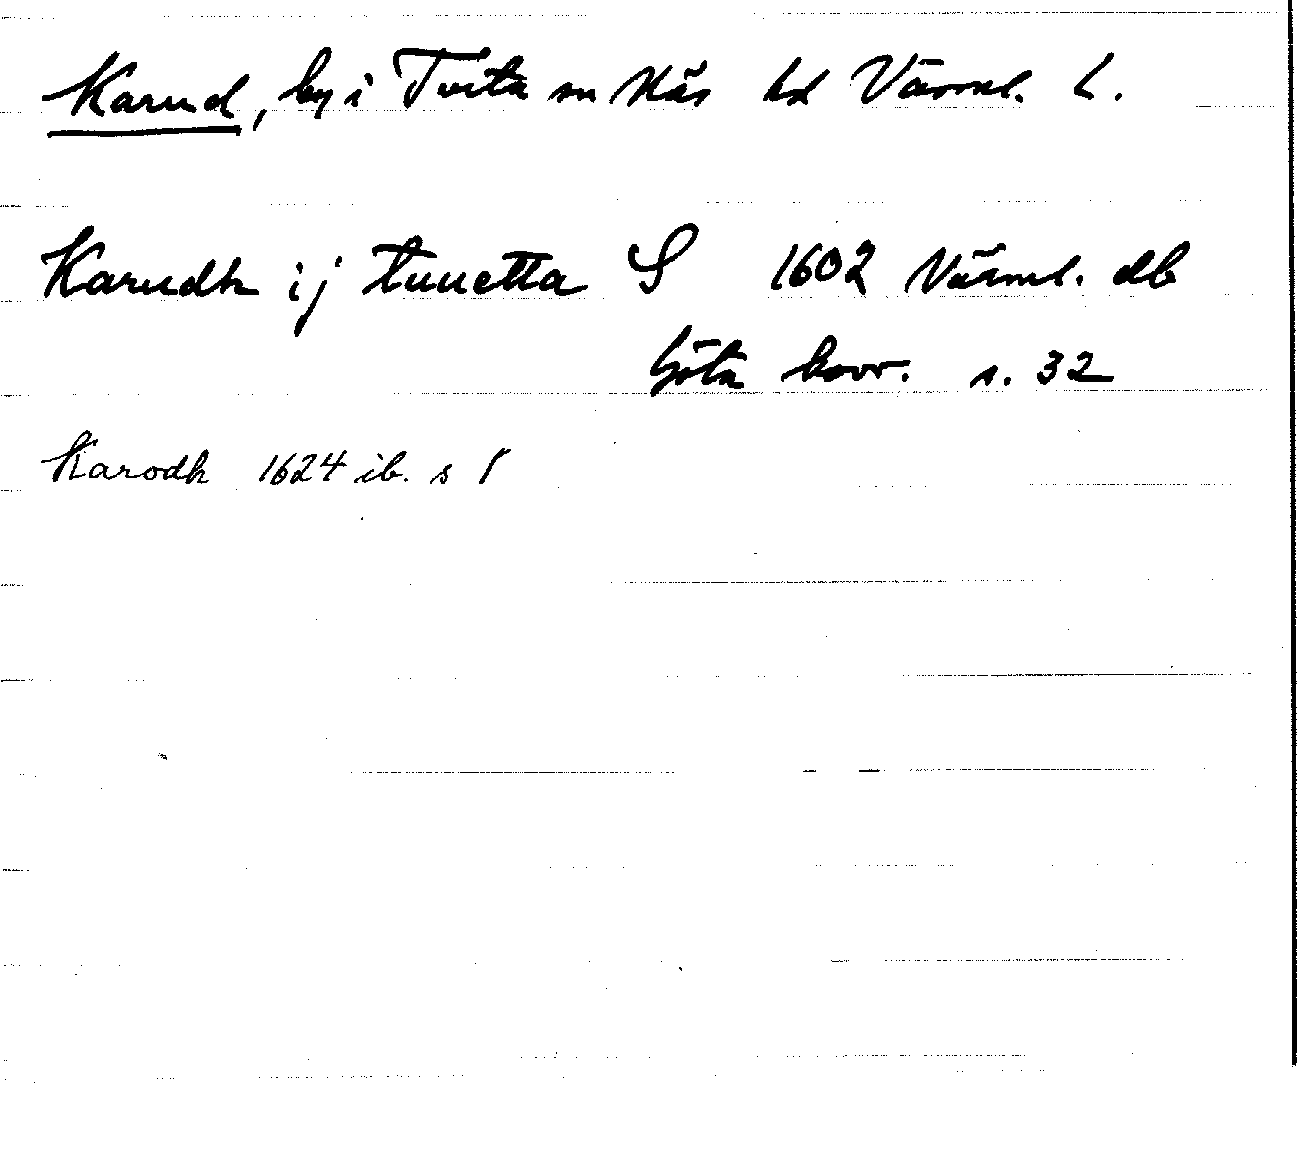 Karud, by i Tveta sn Näs hd Värml. L.
Karudh ij tuuetta S 1602 Värml. db
Göta hovr. s. 32
Karodh 1624 ib. s 1